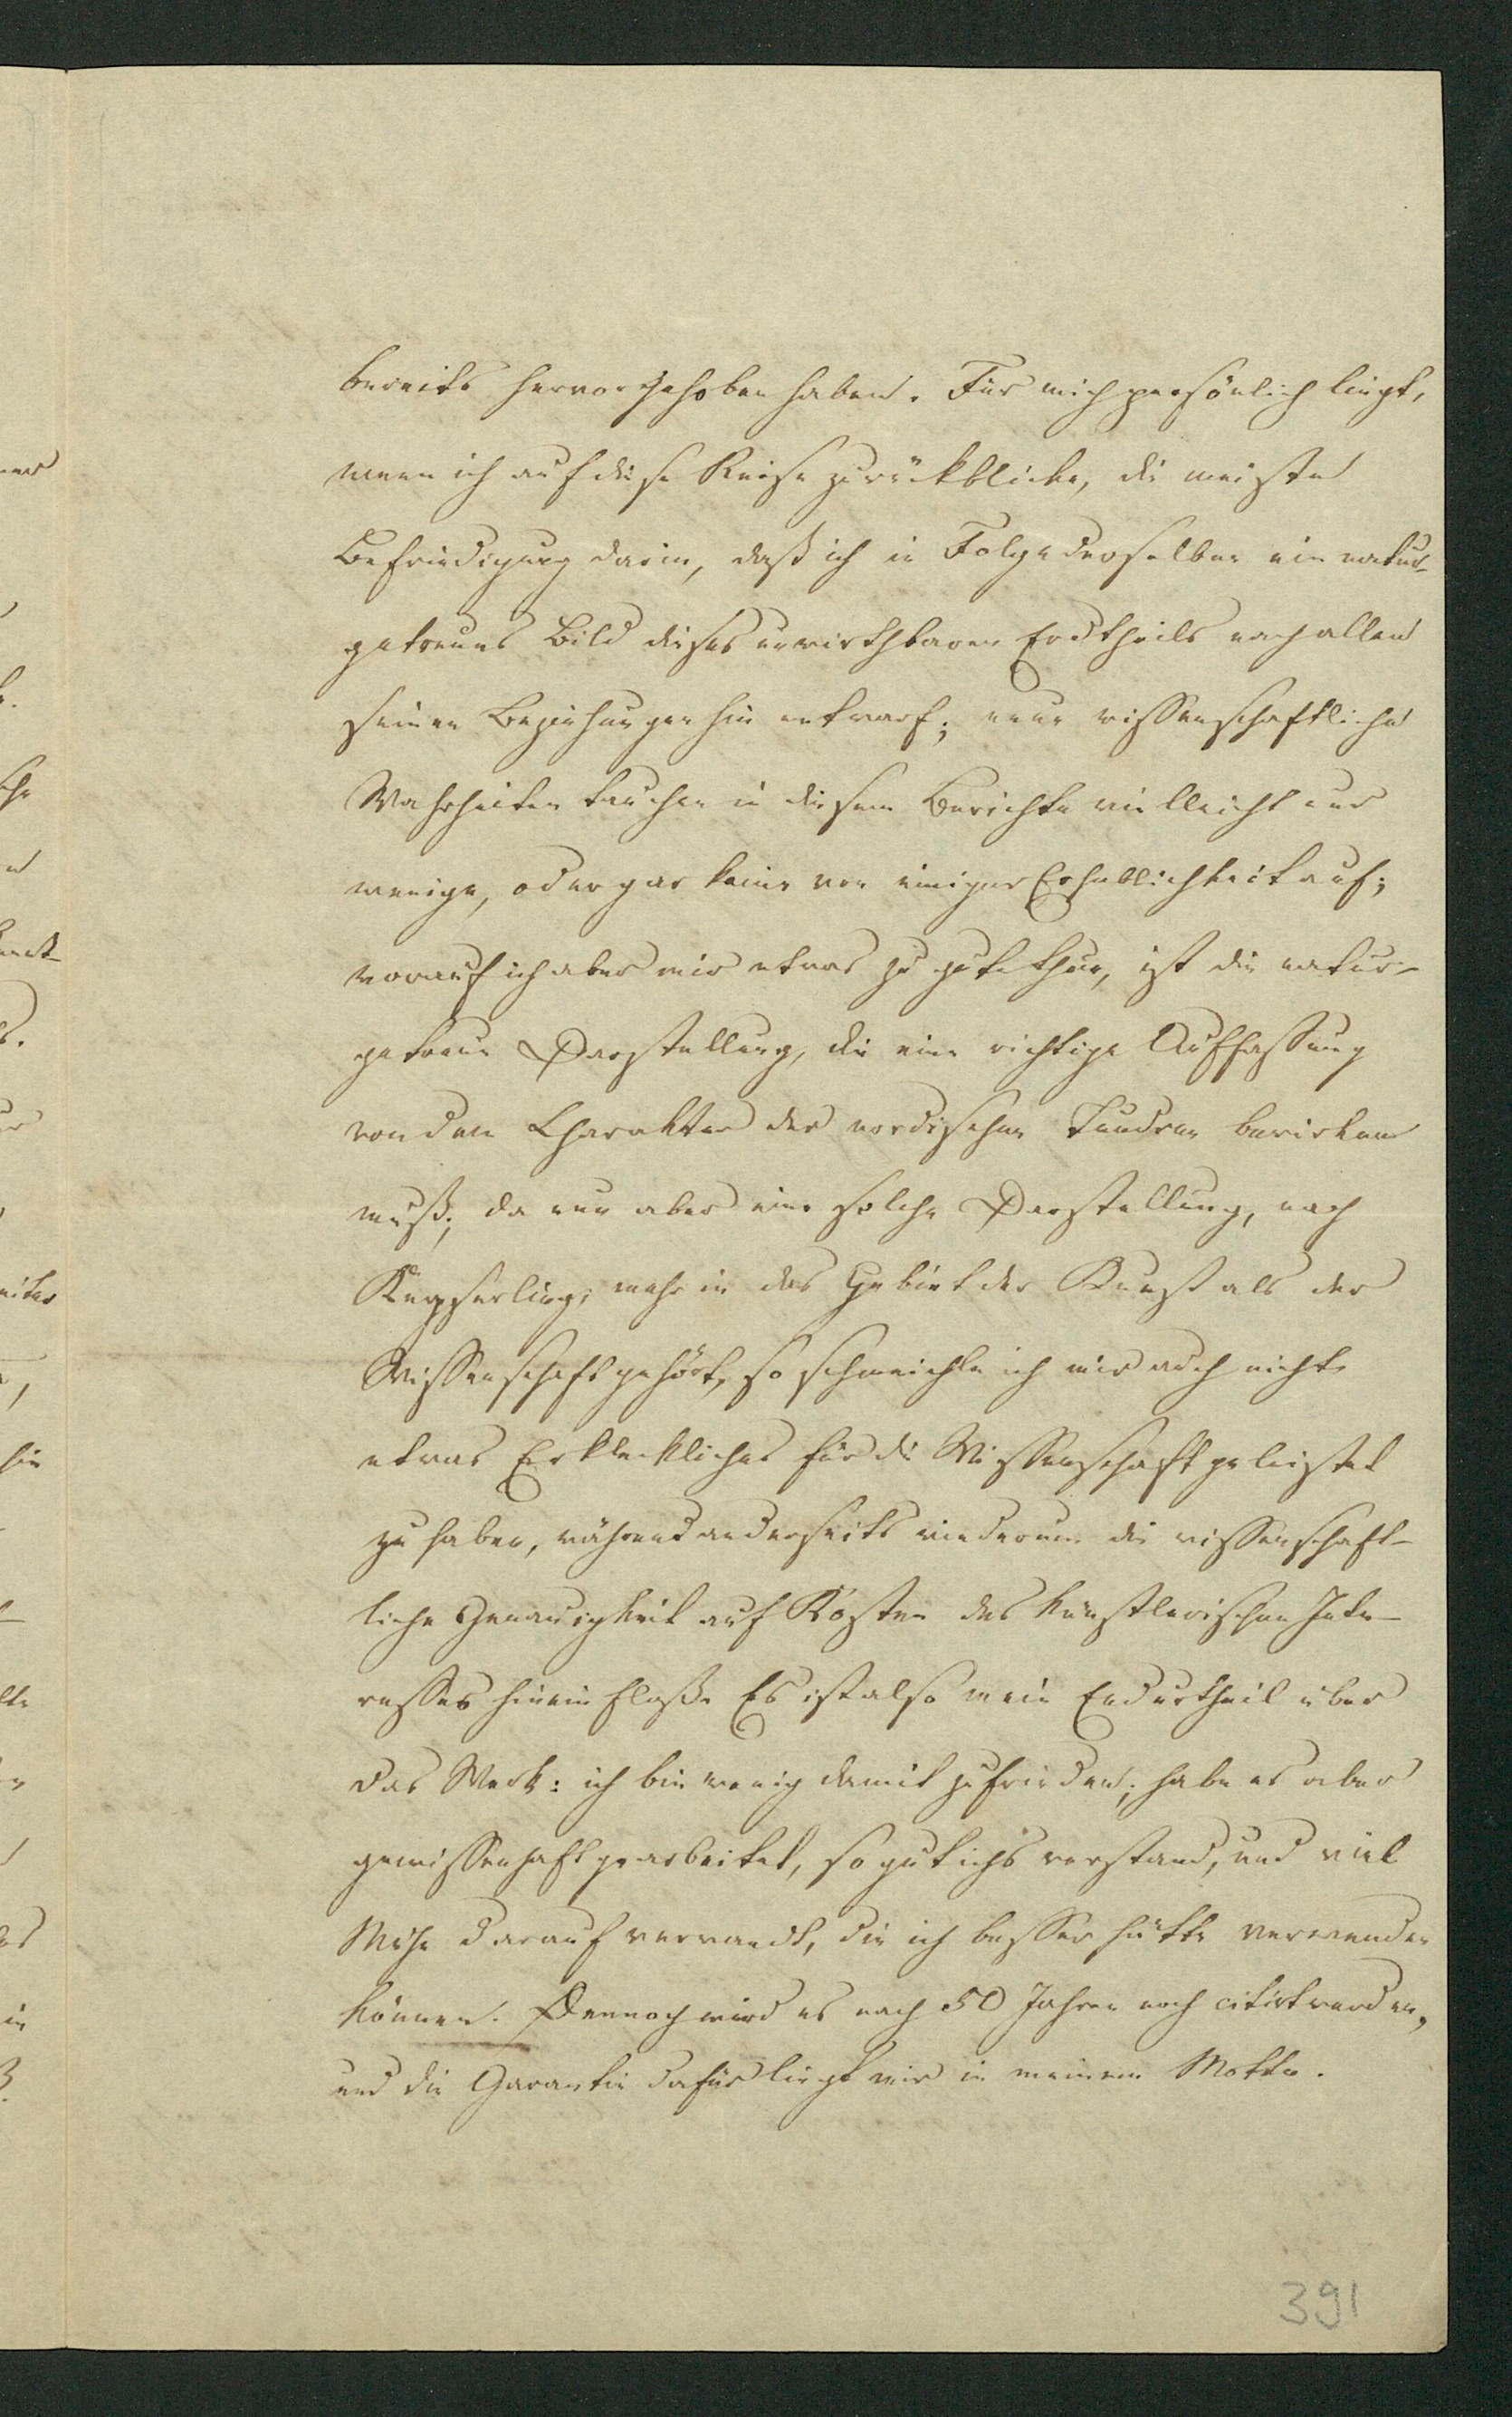 bereits hervorgehoben haben. Für mich persönlich liegt,
wenn ich auf diese Reise zurückblicke, die meiste
Befriedigung darin, daß ich in Folge derselben ein natur-
getreues Bild dieses unwirthbaren Erdtheils nach allen
seinen Beziehungen hin entwarf; neue wissenschaftliche
Wahrheiten tauchen in diesem Berichte vielleicht nur
wenige, oder gar keine von einiger Erheblichkeit auf;
worauf ich aber mir etwas zu gute thue, ist die natur-
getreue Darstellung, die eine richtige Auffassung
von dem Charakter der nordischen Tundren bewirken
muß; da nun aber eine solche Darstellung, nach
Keyserling, mehr in das Gebiet der Kunst als der
Wissenschaft gehört, so schmeichle ich mir auch nicht
etwas Erkleckliches für die Wissenschaft geleistet
zu haben, während anderseits wiederum die wissenschaft-
liche Genauigkeit auf Kosten des künstlerischen Inte-
resses hineinfloß. Es ist also mein Endurtheil über
das Werk: ich bin wenig damit zufrieden; habe es aber
gewissenhaft gearbeitet, so gut ich's verstand, und viel
Mühe darauf verwandt, die ich besser hätte verwenden
können. Dennoch wird es nach 50 Jahren noch citirt werden,
und die Garantie dafür liegt mir in meinem Motto.
391